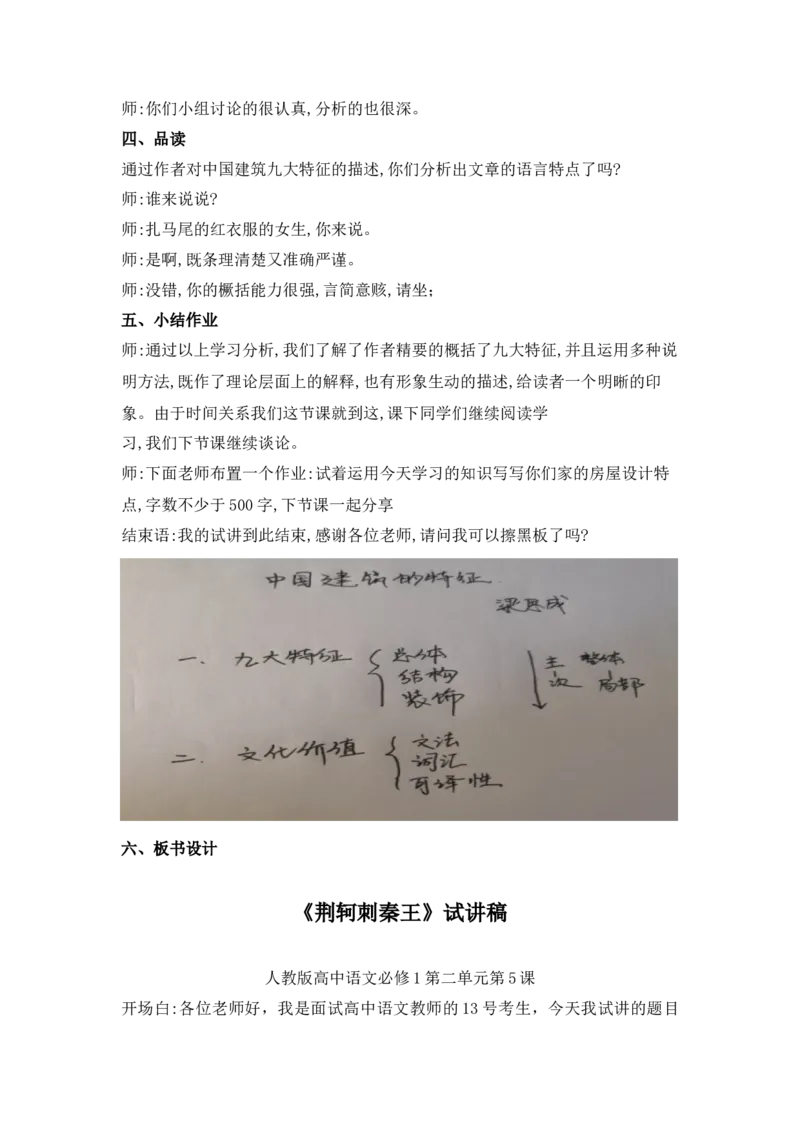 师:你们小组讨论的很认真,分析的也很深。
四、品读
通过作者对中国建筑九大特征的描述,你们分析出文章的语言特点了吗?
师:谁来说说?
师:扎马尾的红衣服的女生,你来说。
师:是啊,既条理清楚又准确严谨。
师:没错,你的概括能力很强,言简意赅,请坐;
五、小结作业
师:通过以上学习分析,我们了解了作者精要的概括了九大特征,并且运用多种说
明方法,既作了理论层面上的解释,也有形象生动的描述,给读者一个明晰的印
象。由于时间关系我们这节课就到这,课下同学们继续阅读学
习,我们下节课继续谈论。
师:下面老师布置一个作业:试着运用今天学习的知识写写你们家的房屋设计特
点,字数不少于500字,下节课一起分享
结束语:我的试讲到此结束,感谢各位老师,请问我可以擦黑板了吗?
中国建筑的特征.
梁思成
一、九大特征 总体 结构 装饰
主 整体
次 局部
二、文化价值 文法 词汇 可译性
六、板书设计
《荆轲刺秦王》试讲稿
人教版高中语文必修1第二单元第5课
开场白:各位老师好,我是面试高中语文教师的13号考生,今天我试讲的题目